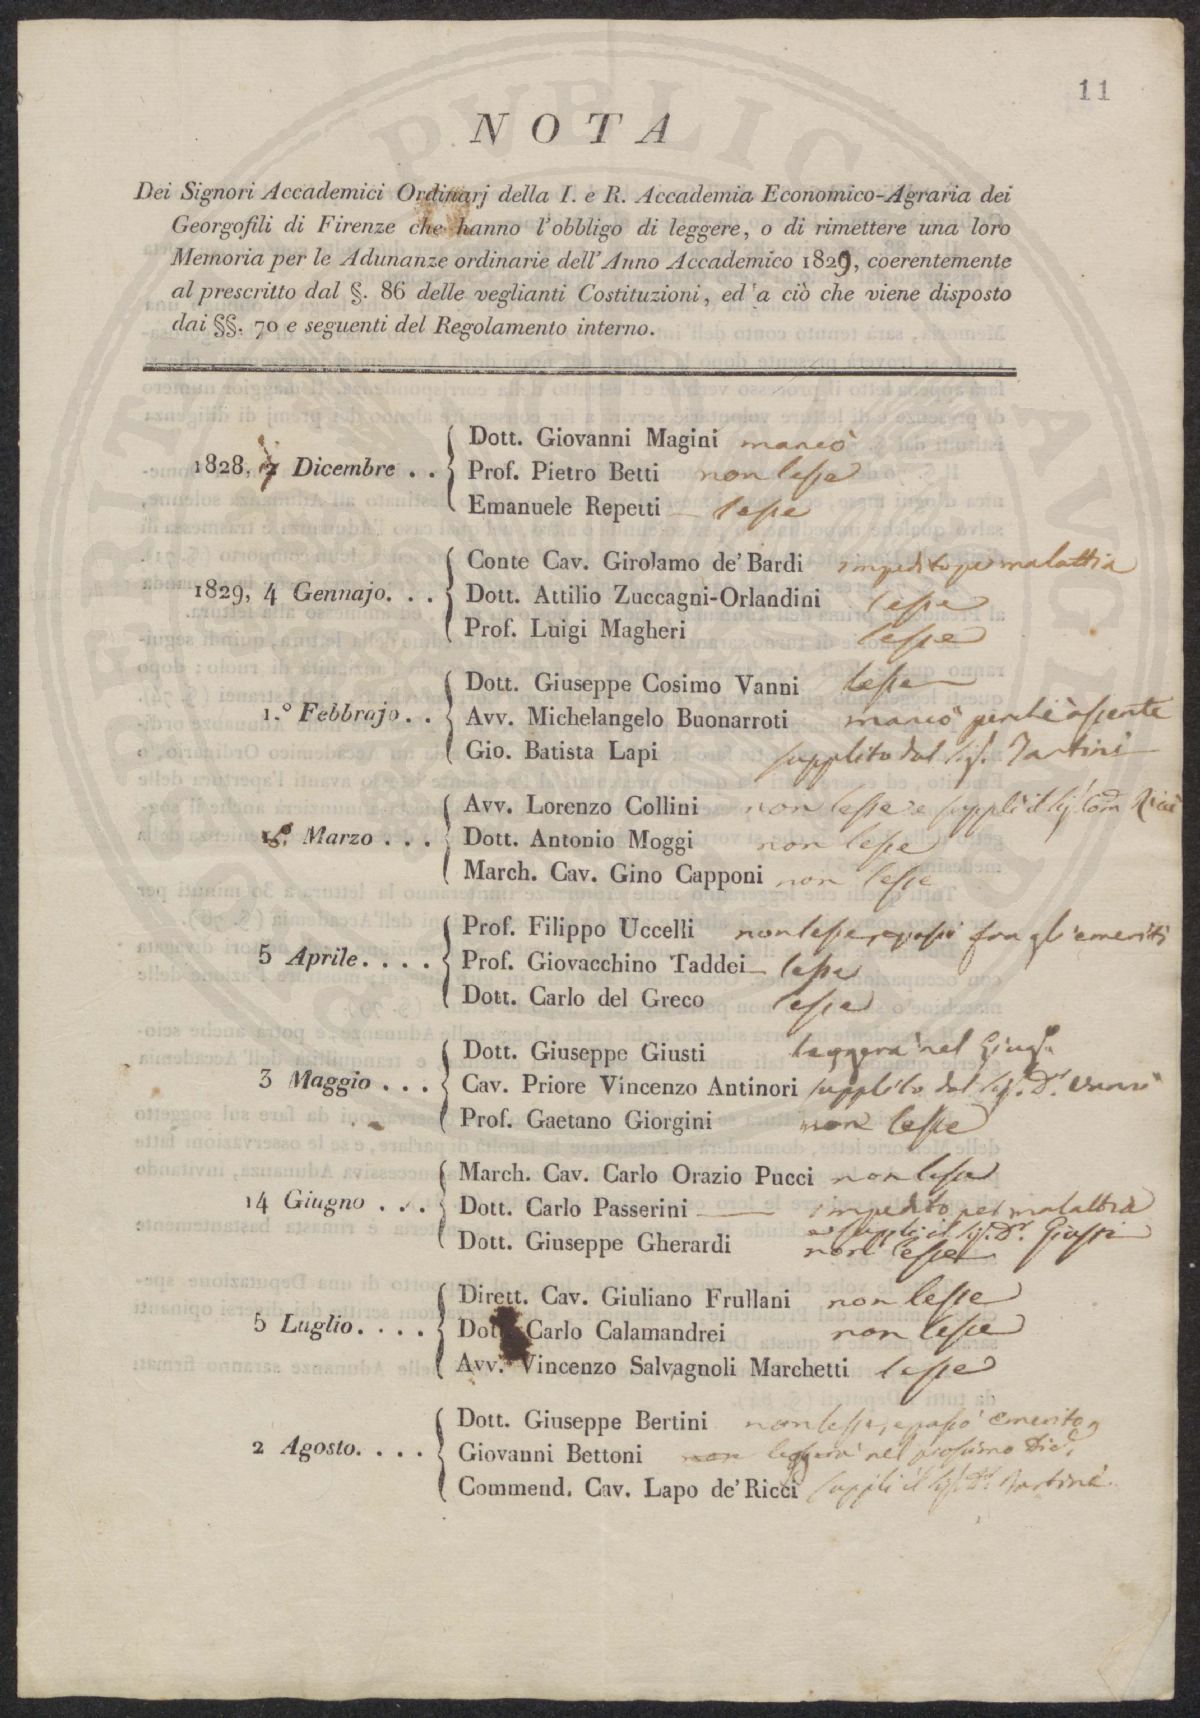 11
NOTA
Dei Signori Accademici Ordinarj della I. e R. Accademia Economico-Agraria dei
Georgofili di Firenze che hanno l'obbligo di leggere, o di rimettere una loro
Memoria per le Adunanze ordinarie dell'Anno Accademico 1829, coerentemente
al prescritto dal §. 86 delle veglianti Costituzioni, ed a ciò che viene disposto
dai §§. 70 e seguenti del Regolamento interno.
Dott. Giovanni Magini mancò
1828, 7 Dicembre . . Prof. Pietro Betti non lesse
Emanuele Repetti lesse
Conte Cav. Girolamo de' Bardi impedito per malattia
1829, 4 Gennajo. . . Dott. Attilio Zuccagni-Orlandini lesse
Prof. Luigi Magheri lesse
Dott. Giuseppe Cosimo Vanni lesse
1.° Febbrajo. . Avv. Michelangelo Buonarroti mancò perchè assente
Gio. Batista Lapi supplito dal Sig. Tartini
Avv. Lorenzo Collini non lesse e supplì il Sig. Com. Ricci
Marzo . . . Dott. Antonio Moggi non lesse
March. Cav. Gino Capponi non lesse
Prof. Filippo Uccelli non lesse, e passò fra gli emeriti
5 Aprile. . . . Prof. Giovacchino Taddei lesse
Dott. Carlo del Greco lesse
Dott. Giuseppe Giusti leggerà nel Giug.
3 Maggio . . . Cav. Priore Vincenzo Antinori supplito dal Sig. Dr. Vanni
Prof. Gaetano Giorgini non lesse
March. Cav. Carlo Orazio Pucci non lesse
14 Giugno . . . Dott. Carlo Passerini impedito per malattia
e supplì il Sig. Dr. Giusti
Dott. Giuseppe Gherardi non lesse
Dirett. Cav. Giuliano Frullani non lesse
5 Luglio. . . . Dott. Carlo Calamandrei non lesse
Avv. Vincenzo Salvagnoli Marchetti lesse
Dott. Giuseppe Bertini non lesse, e passò emerito
2 Agosto. . . . Giovanni Bettoni non leggerà nel prossimo Dic.
Commend. Cav. Lapo de' Ricci supplì il Sig. Dr. Tartini